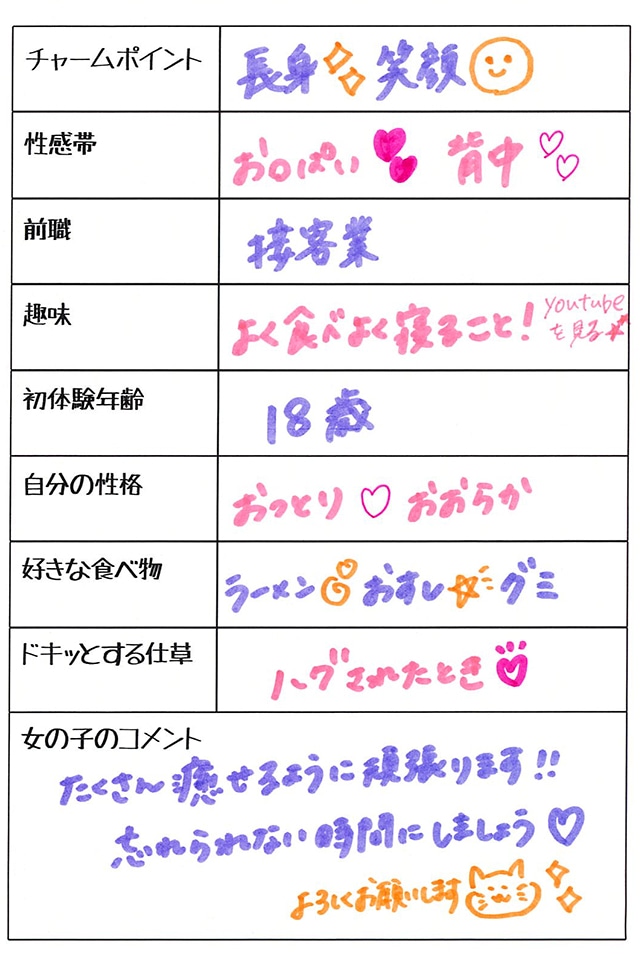 チャームポイント 長身 笑顔
性感帯 お〇ぱい 背中
前職 接客業
趣味 よく食べよく寝ること! youtubeを見る
初体験年齢 18歳
自分の性格 おっとり♡おおらか
好きな食べ物 ラーメン おすし グミ
ドキッとする仕草 ハグされたとき
女の子のコメント
たくさん癒せるように頑張ります!!
忘れられない時間にしましょう♡
よろしくお願いします